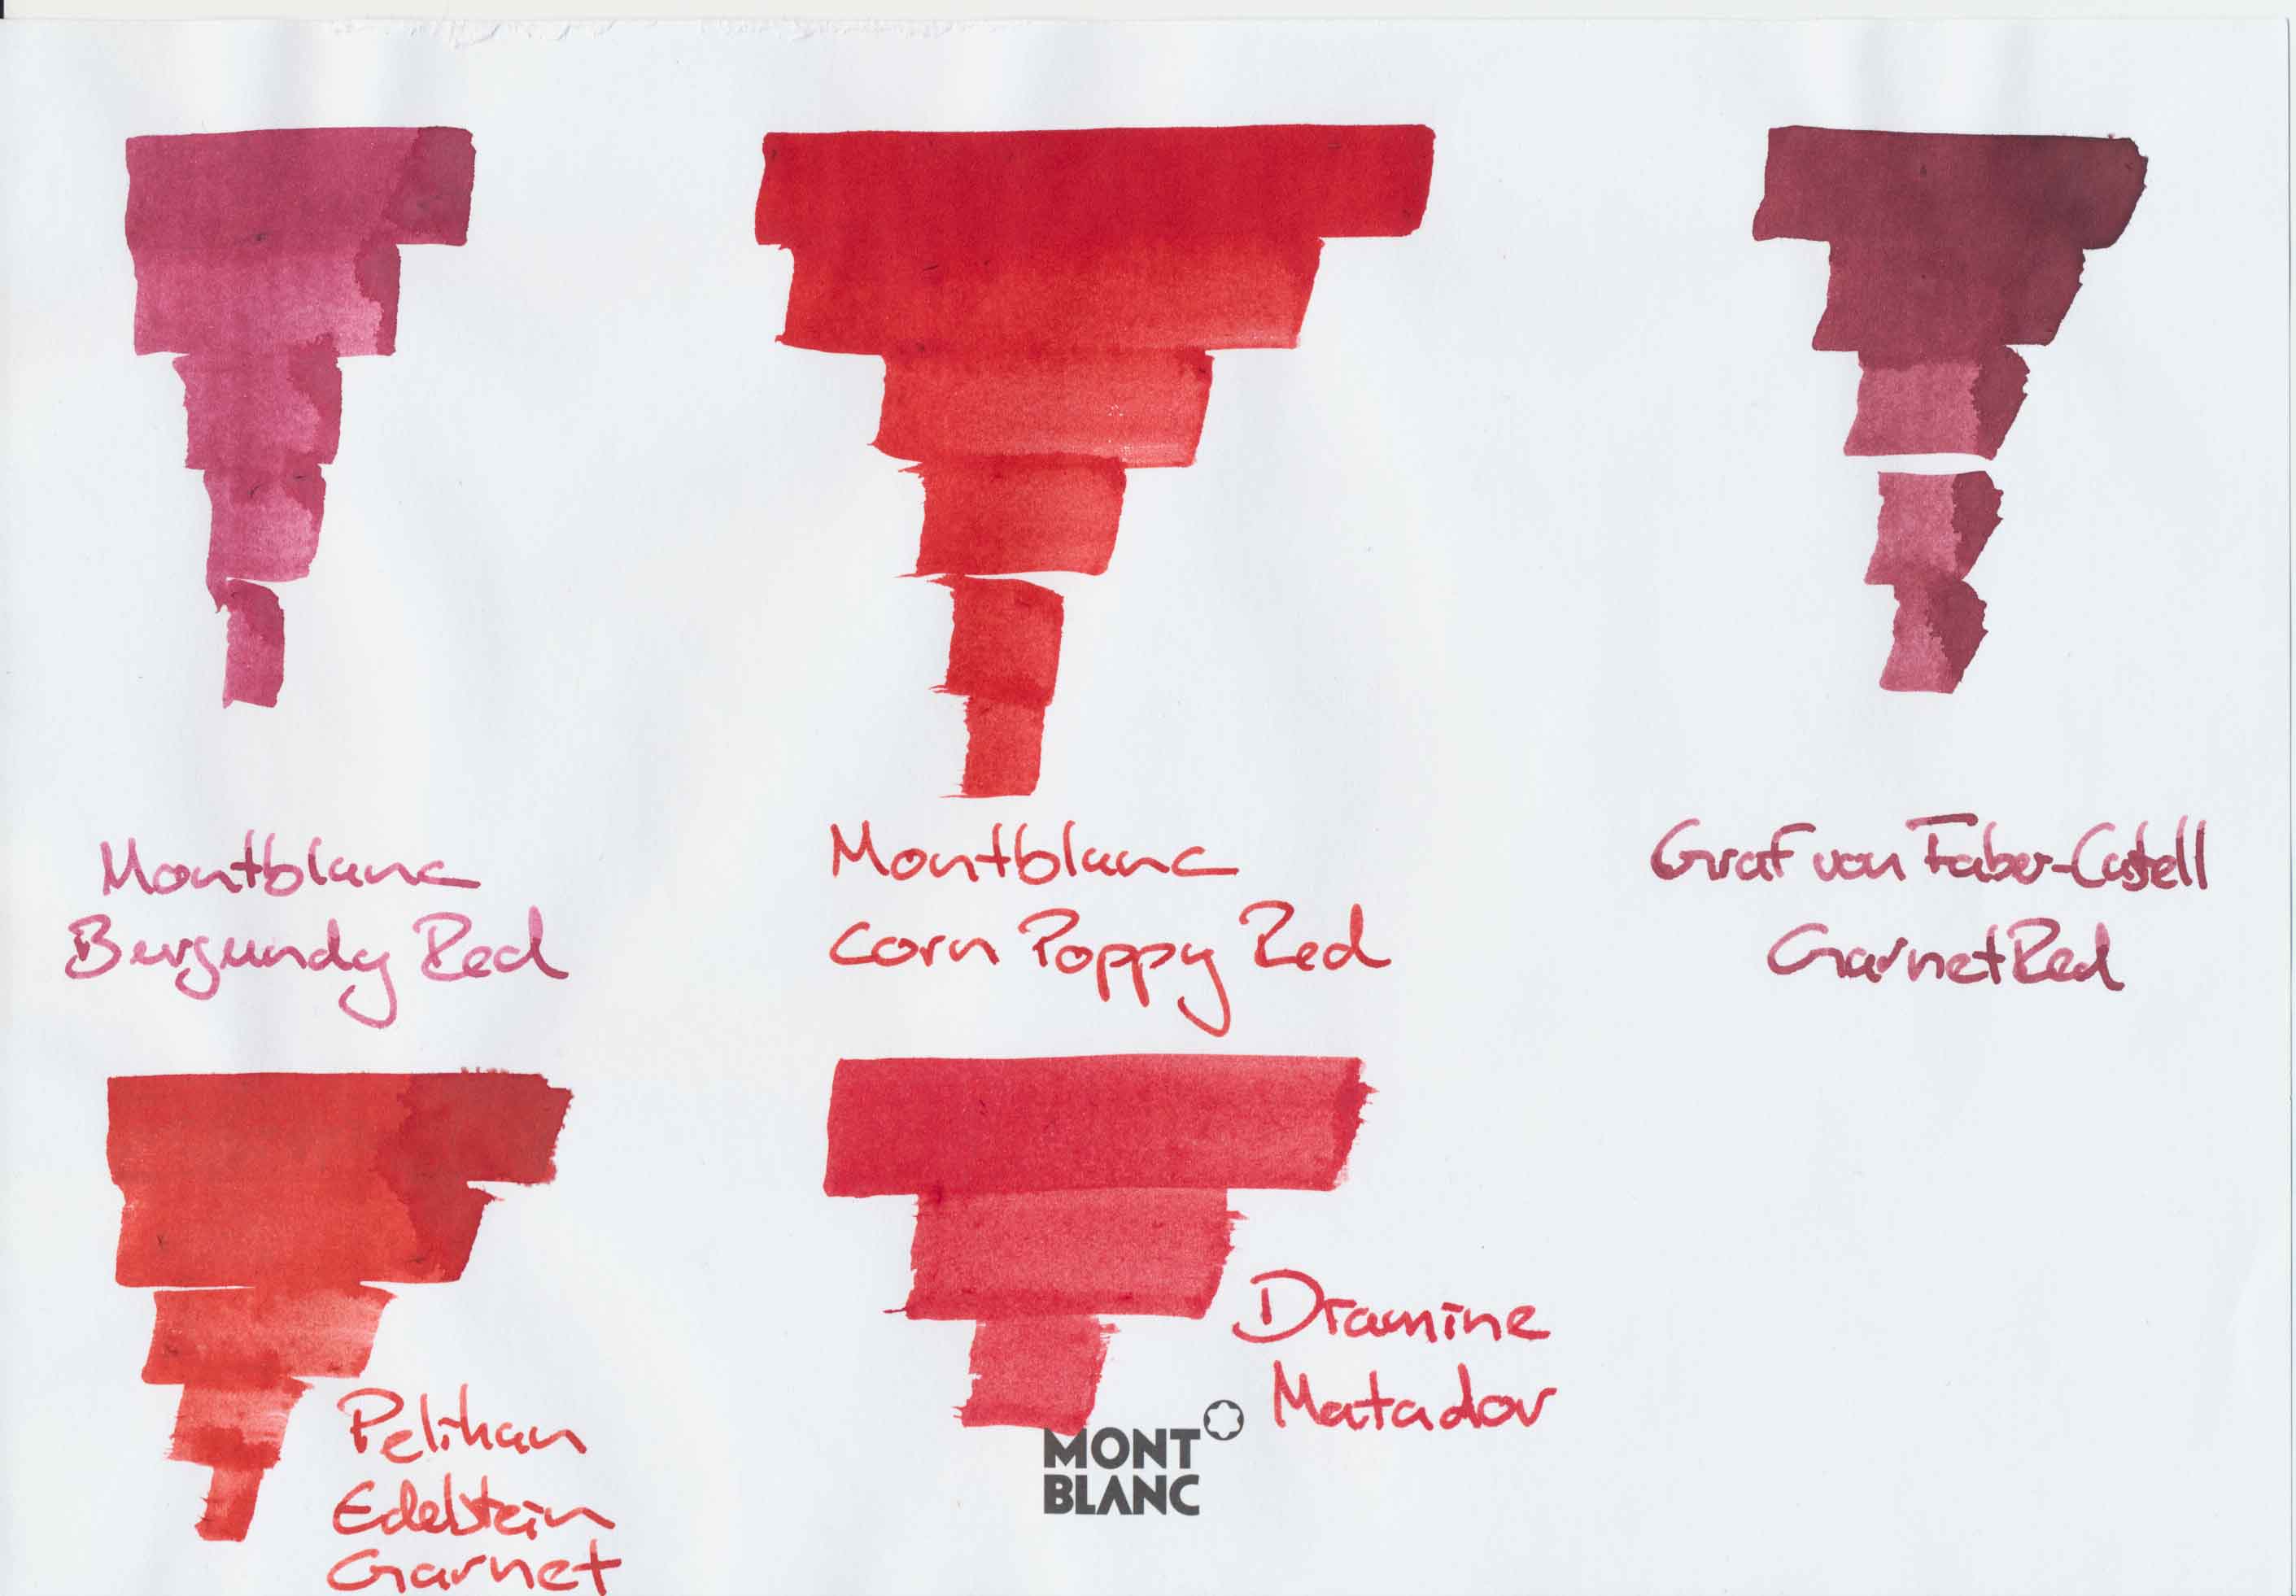 Montblanc
Burgundy Red
Montblanc
Corn Poppy Red
Graf von Faber-Castell
Garnet Red
Pelikan
Edelstein
Garnet
Diamine
Matador
MONT
BLANC